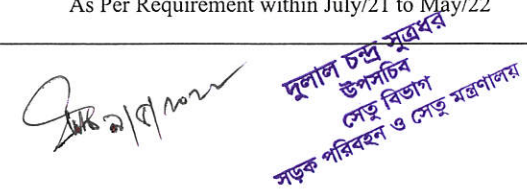 As Per Requirement within July/21 to May/22
দুলাল চন্দ্র সূত্রধর
উপসচিব
সেতু বিভাগ
সড়ক পরিবহন ও সেতু মন্ত্রণালয়